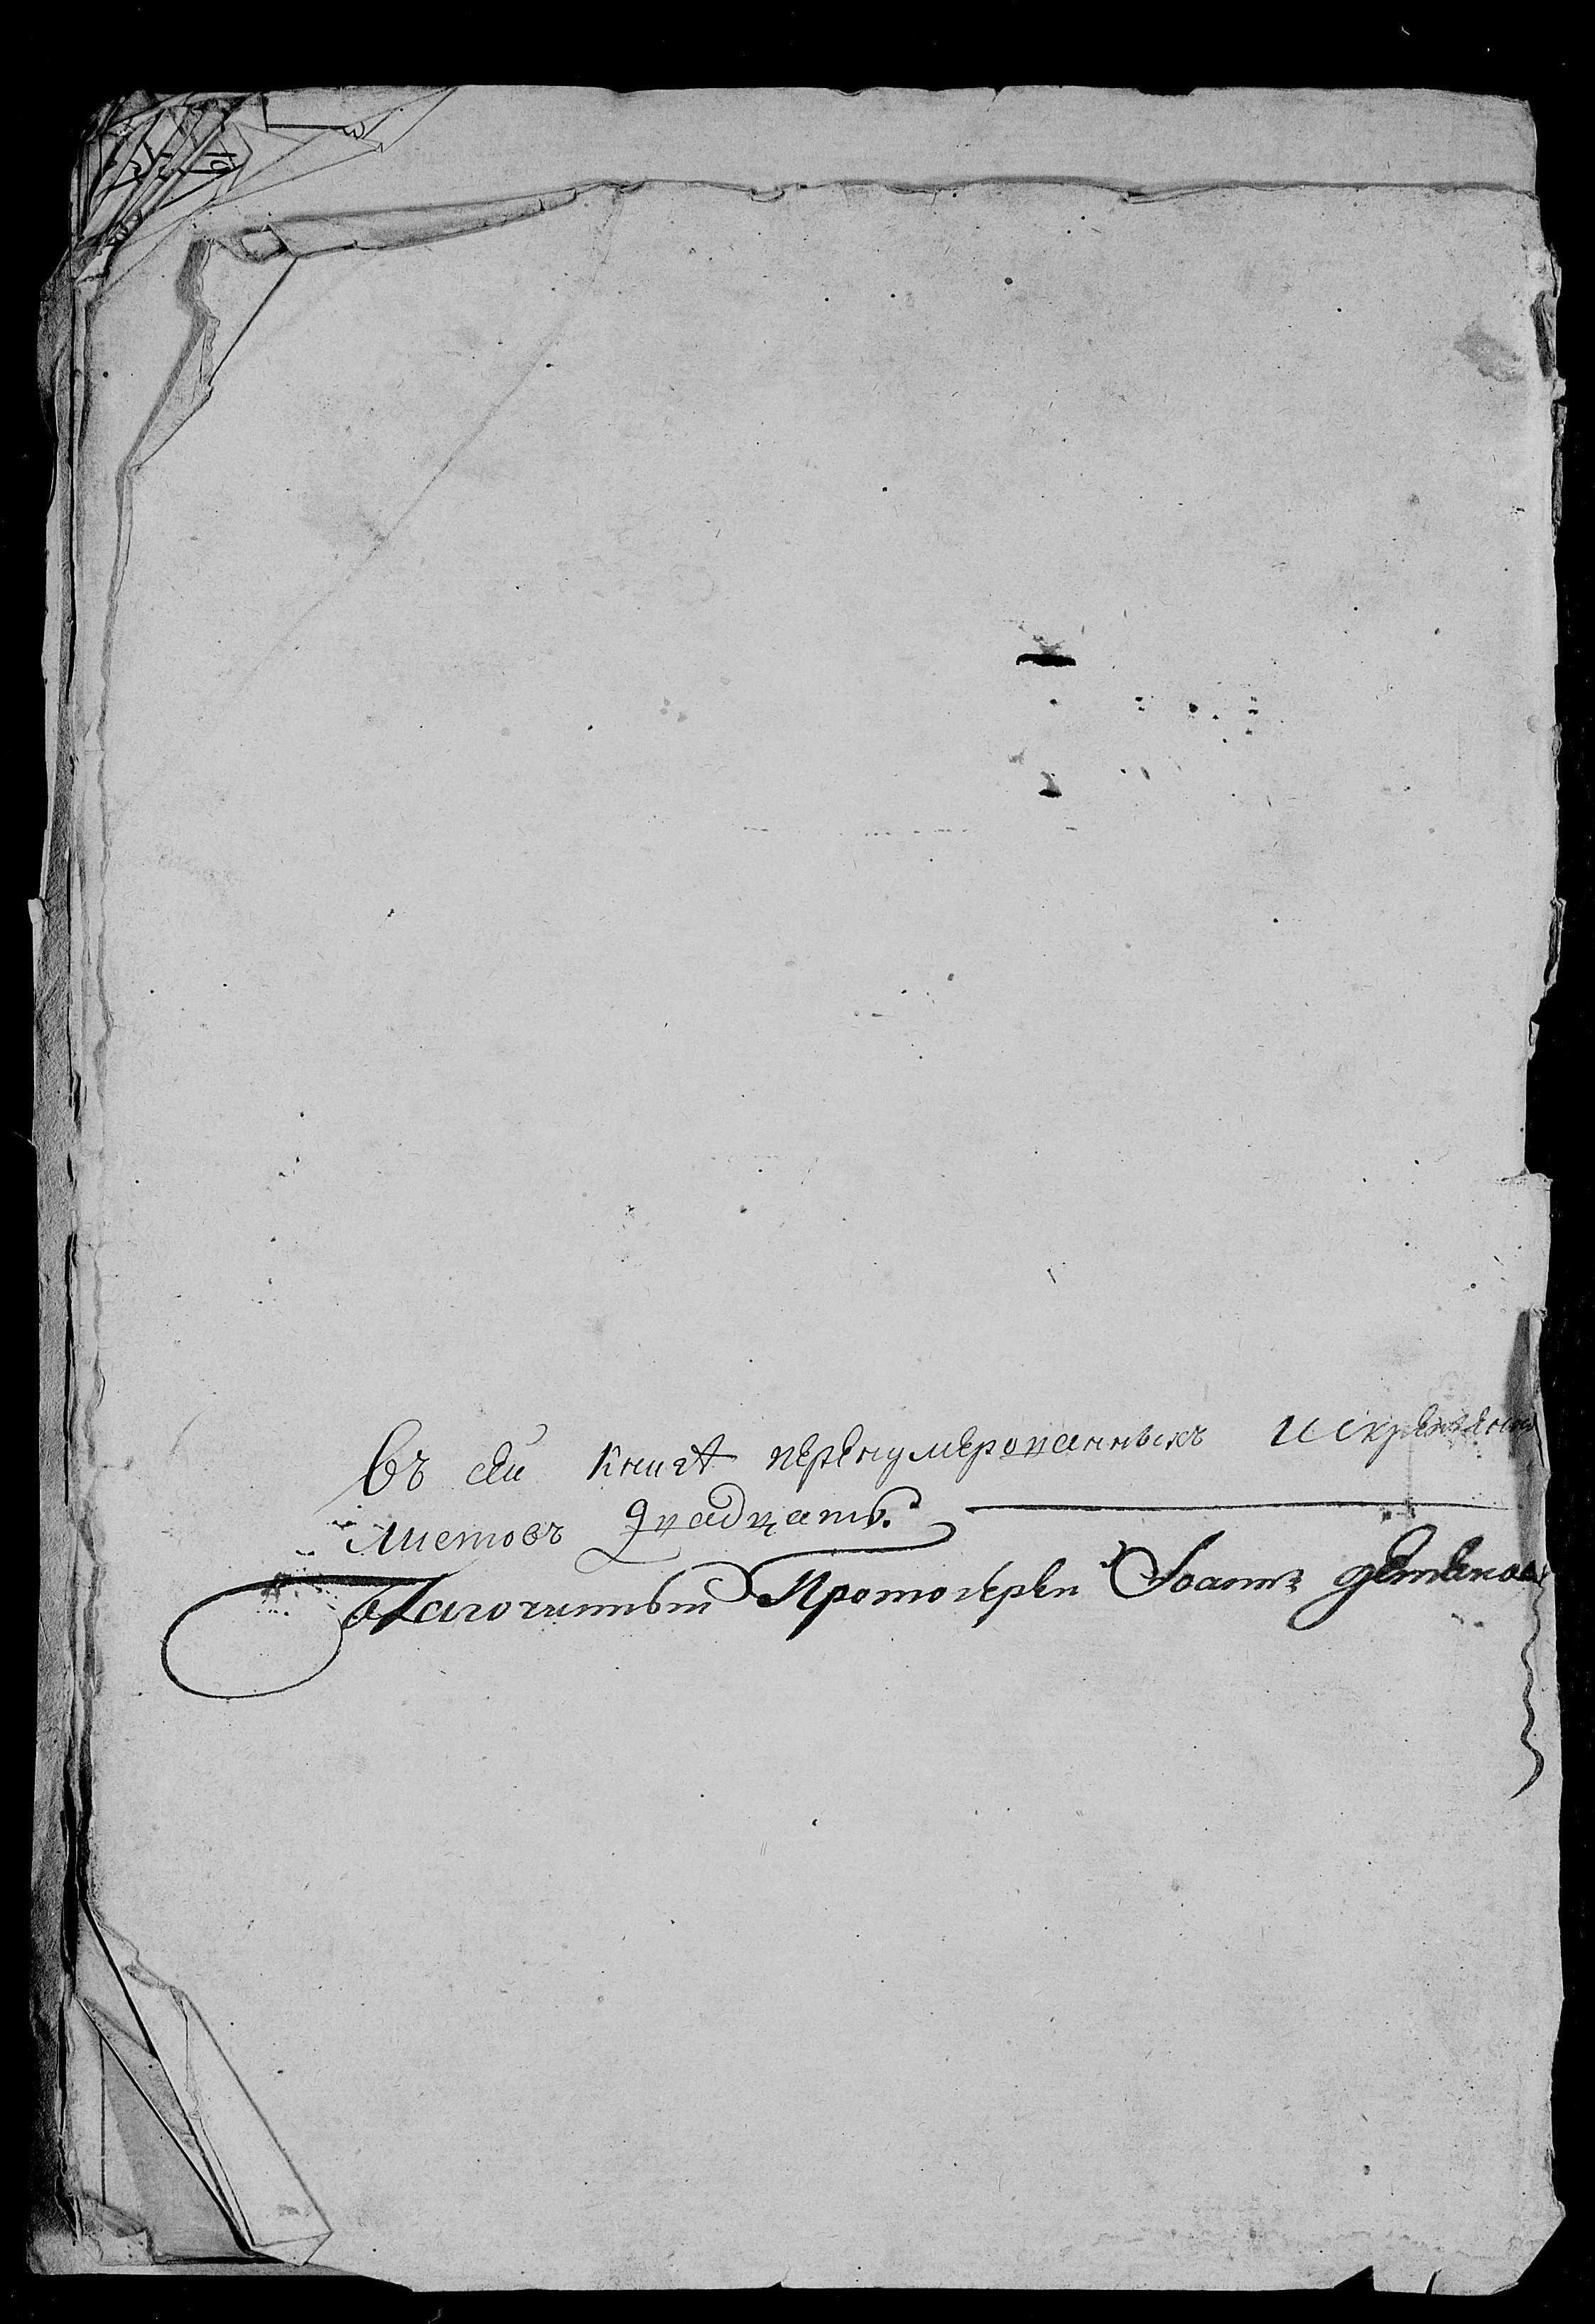 Въ сей книгѣ перенумерованныхъ и скрѣпленны
листовъ двадцать.
Благочинный Протоіерей Іоаннъ